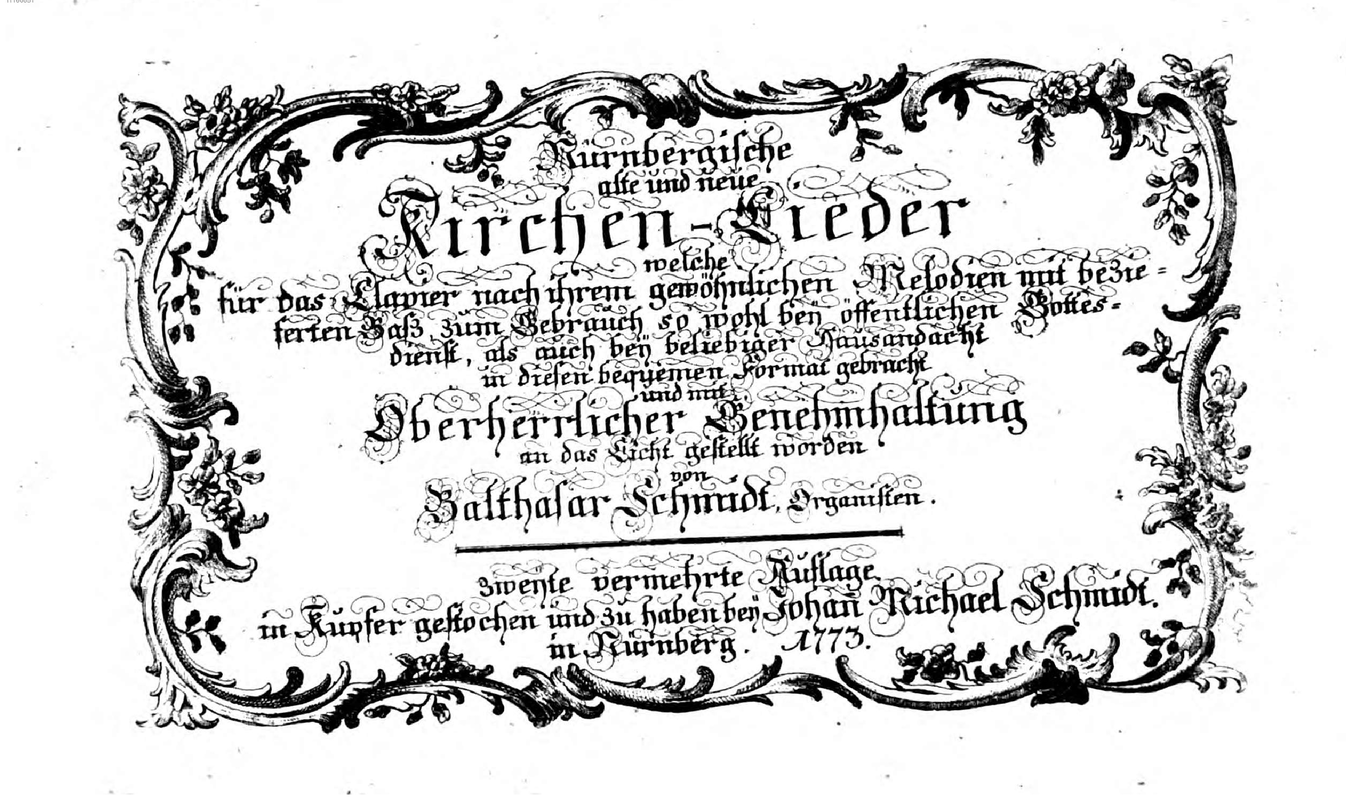 Nürnbergische
alte und neue
Kirchen-Lieder
welche
für das Clavier nach ihrem gewöhnlichen Melodien mit bezie=
ferten Baß zum Gebrauch so wohl beÿ öffentlichen Gottes=
dienst, als auch beÿ beliebiger Hausandacht
in diesen bequemen Format gebracht
und mit
Oberherrlicher Genehmhaltung
an das Licht gestellt worden
von
Balthasar Schmidt, Organisten.
zweÿte vermehrte Auflage
in Kupfer gestochen und zu haben beÿ Johañ Michael Schmidt.
in Nürnberg. 1773.